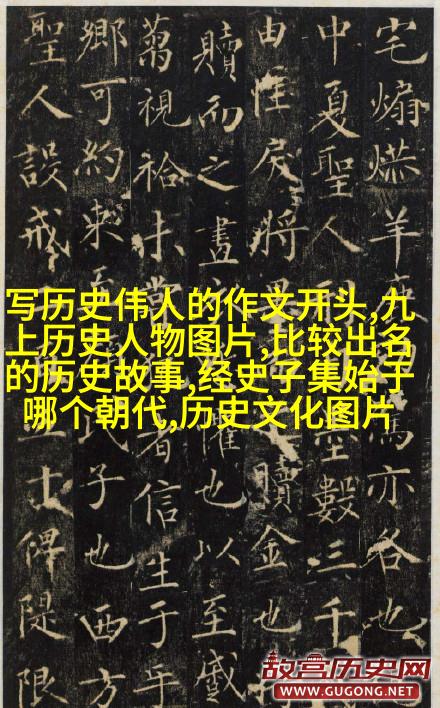 写历史伟人的作文开头,九
上历史人物图片,比较出名
的历史故事,经史子集始于
哪个朝代,历史文化图片
宅煽羊亦各也
中夏聖人數三千
由性戾將贖金也
贖而之盡也以至戚
視者信生于年
鄉可約束子也西方
聖人設戒士俾隄限
故宫历史网
WWW.GUGONG.NET